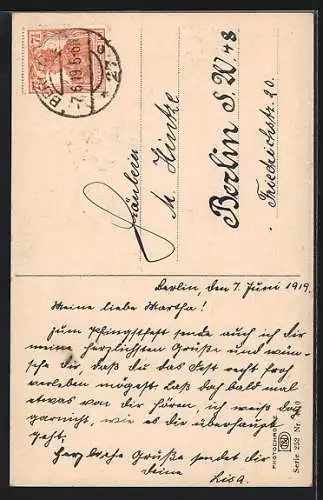 7½
BERLIN
-7.6.19.5-6N
* 27
Fräulein
M. Hintze
Berlin S.W. 48
Friedrichstr. 20.
Berlin, den 7. Juni 1919.
Meine liebe Martha!
Zum Pfingstfest sende auch ich dir
meine herzlichsten Grüße und wün-
sche dir, daß du das Fest recht froh
verleben mögest. Laß doch bald mal
etwas von dir hören, ich weiß doch
garnicht, wie es dir überhaupt
geht.
Herzliche Grüße sendet dir
deine Lisa.
PHOTOCHROM
Serie 252 Nr.